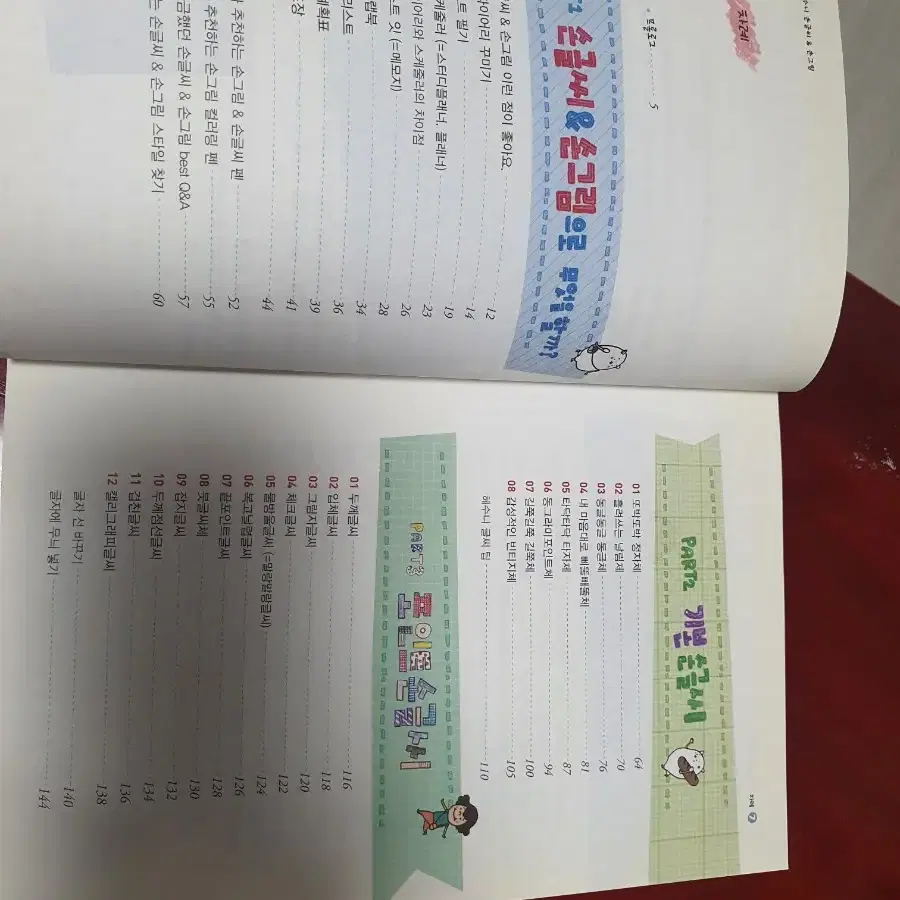 수니 손글씨 & 손그림
차례
프롤로그 5
손글씨 & 손그림으로 무엇을 할까?
씨 & 손그림 이런 점이 좋아요. 12
이어리 꾸미기 14
트 필기 19
케줄러 (=스터디플래너, 플래너) 23
이어리와 스케줄러의 차이점 26
스트 잇 (=메모지) 28
랩북 34
리스트 36
계획표 39
장 41
44
추천하는 손그림 & 손글씨 펜 52
추천하는 손그림 컬러링 펜 55
금했던 손글씨 & 손그림 best Q&A 57
는 손글씨 & 손그림 스타일 찾기 60
차례 7
PART2 기본 손글씨
01 또박또박 정자체 64
02 흘려쓰는 날림체 70
03 동글동글 둥근체 76
04 내 마음대로 삐뚤빼뚤체 81
05 타닥타닥 타자체 87
06 동그라미포인트체 94
07 길쭉길쭉 길쭉체 100
08 감성적인 빈티지체 105
헤수니 글씨 팁 110
PART3 포인트 손글씨
01 두께글씨 116
02 입체글씨 118
03 그림자글씨 120
04 체크글씨 122
05 물방울글씨 (=말랑말랑글씨) 124
06 복고날림글씨 126
07 끝포인트글씨 128
08 붓글씨체 130
09 잡지글씨 132
10 두께점선글씨 134
11 겹침글씨 136
12 캘리그래피글씨 138
글자 선 바꾸기 140
글자에 무늬 넣기 144